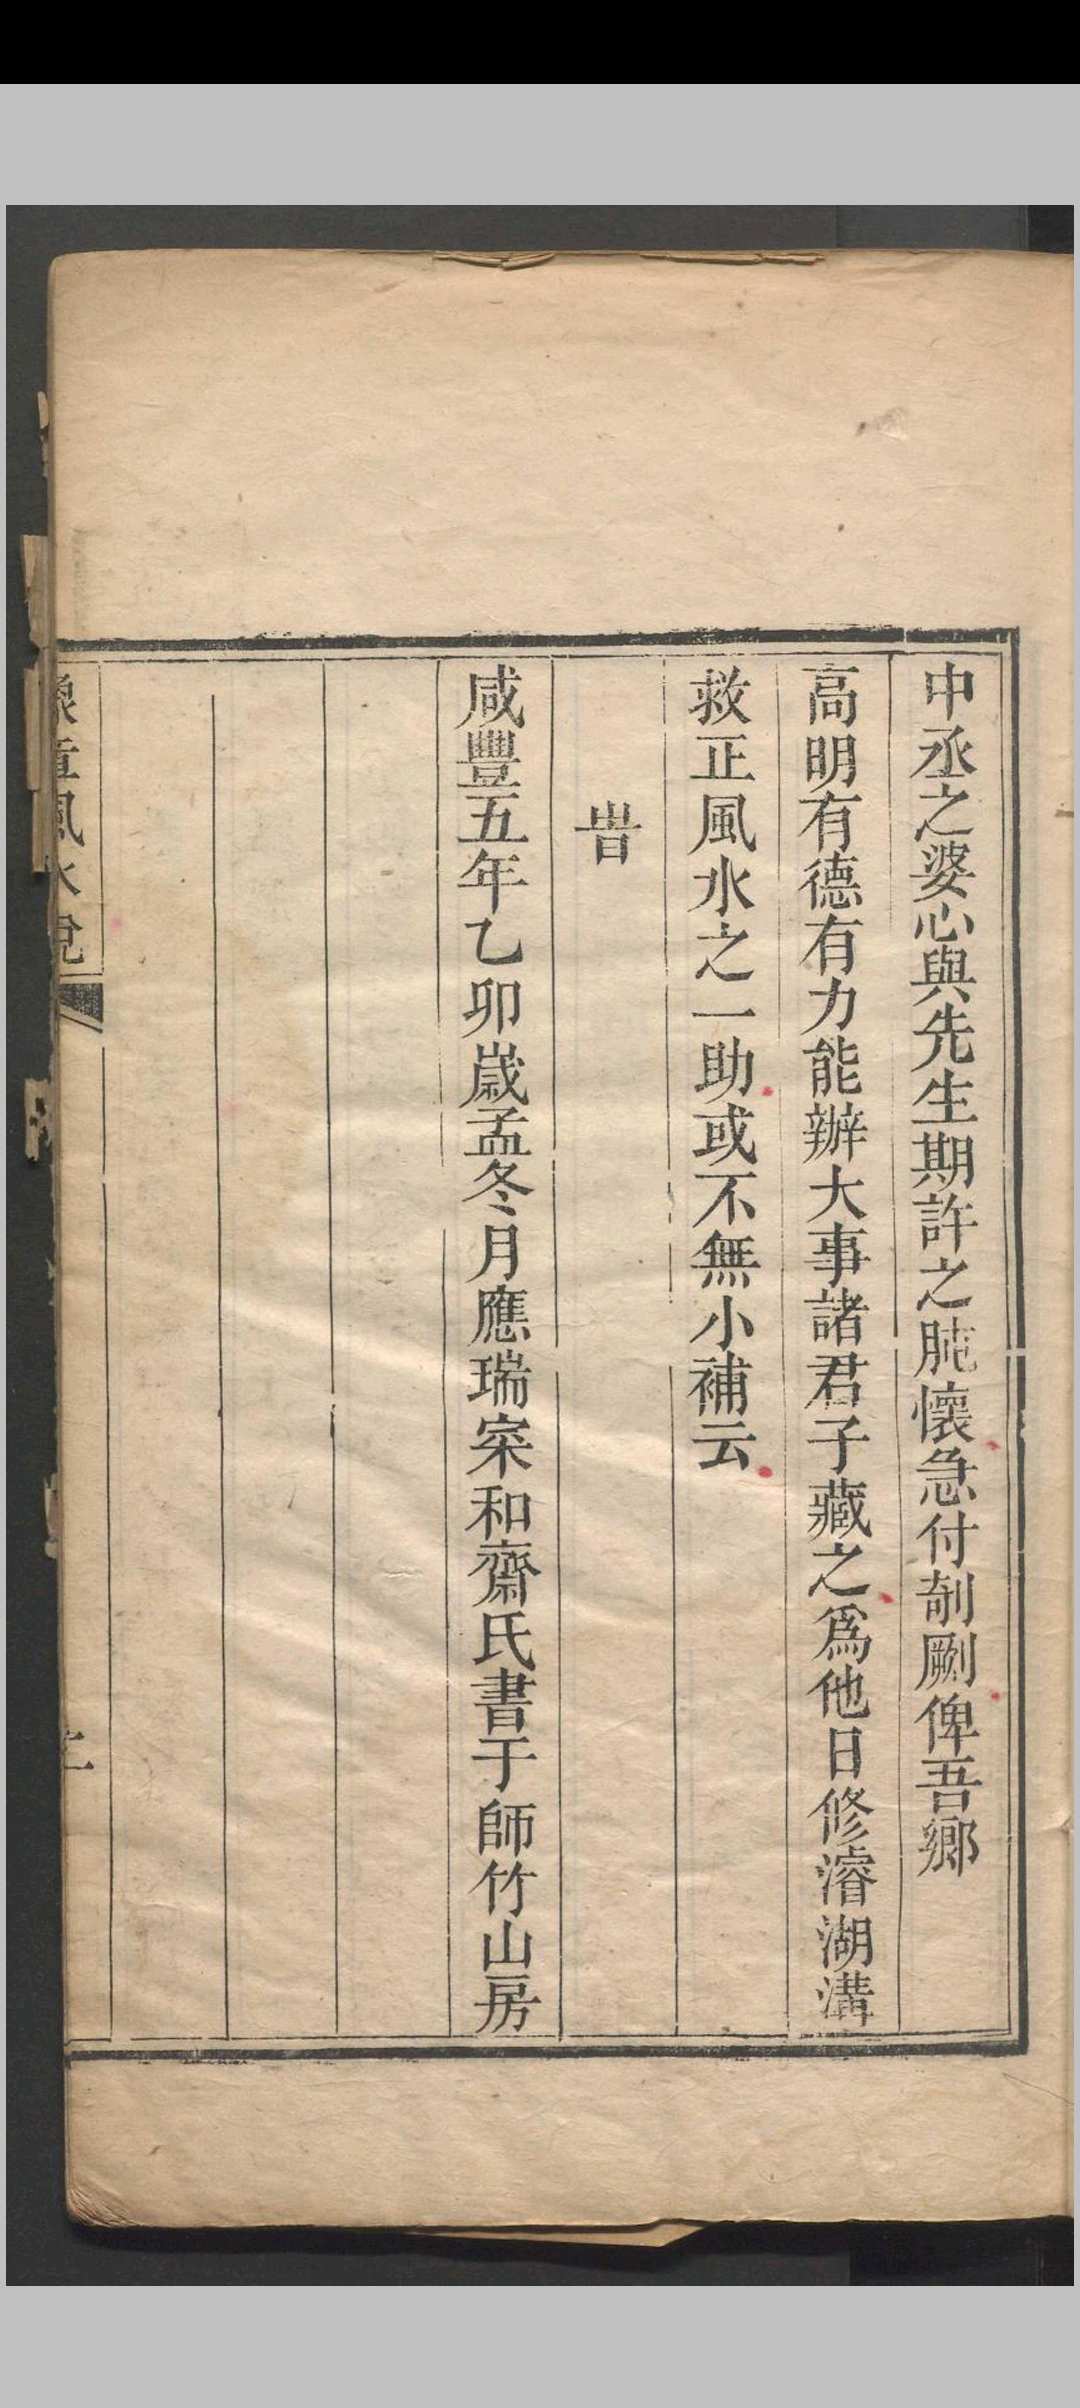 中丞之婆心與先生期許之肫懷急付剞劂俾吾鄉
高明有德有力能辦大事諸君子藏之爲他日修濬湖溝
救正風水之一助或不無小補云
旹
咸豐五年乙卯歲孟冬月應瑞寀和齋氏書于師竹山房
風水說
二